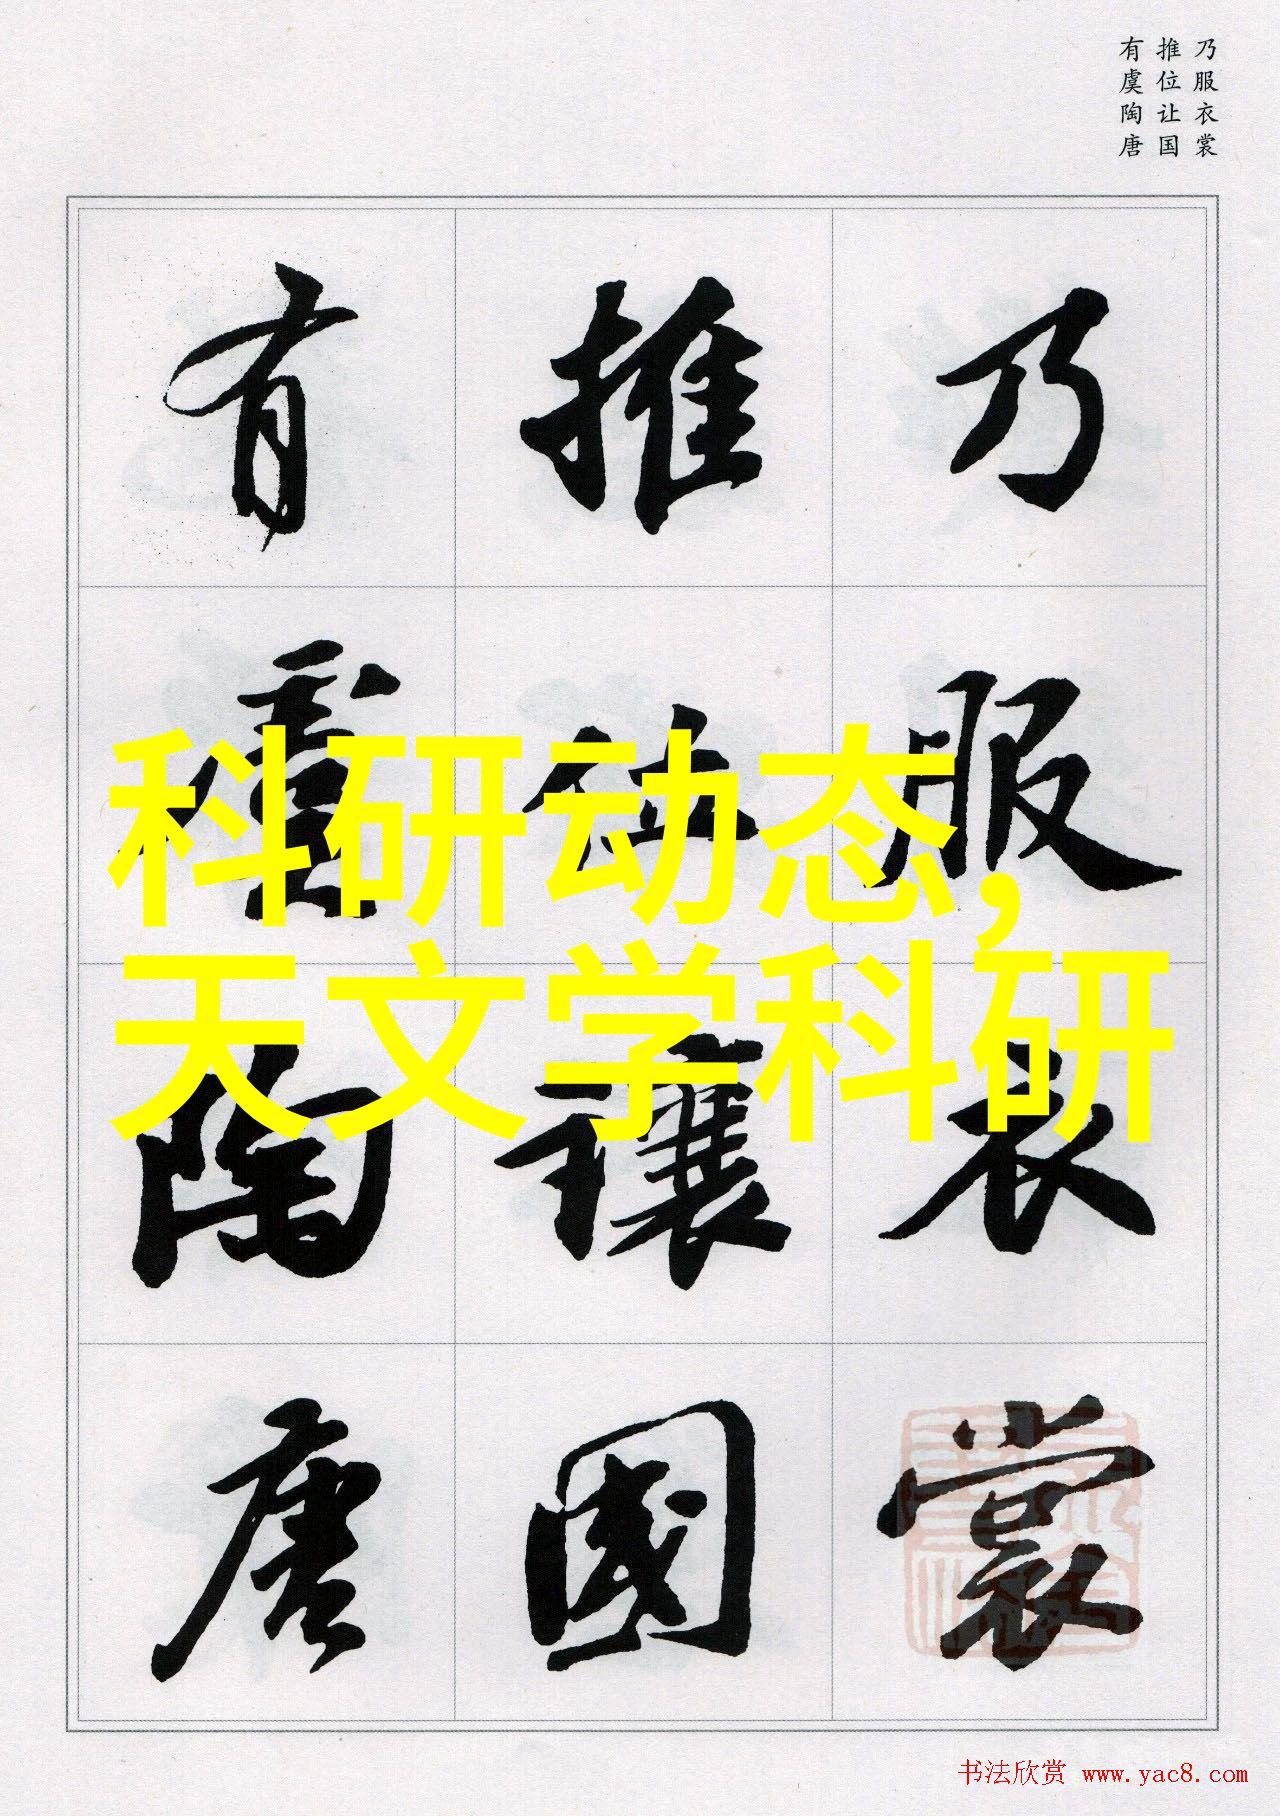 乃服衣裳
推位让国
有虞陶唐
乃服衣裳
推位讓國
有虞陶唐
科研动态,
天文学科研
书法欣赏 www.yac8.com